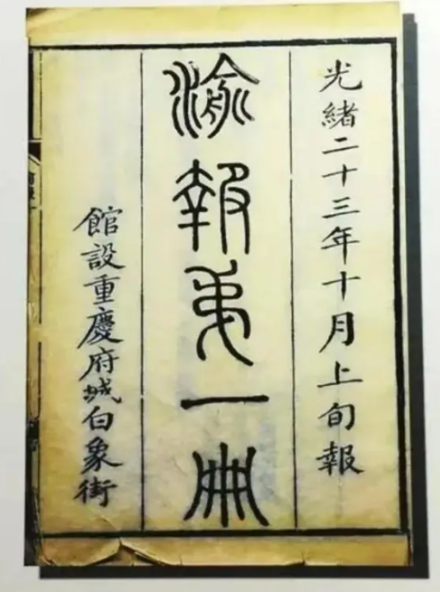 光緒二十三年十月上旬報
渝報弟一冊
館設重慶府城白象街